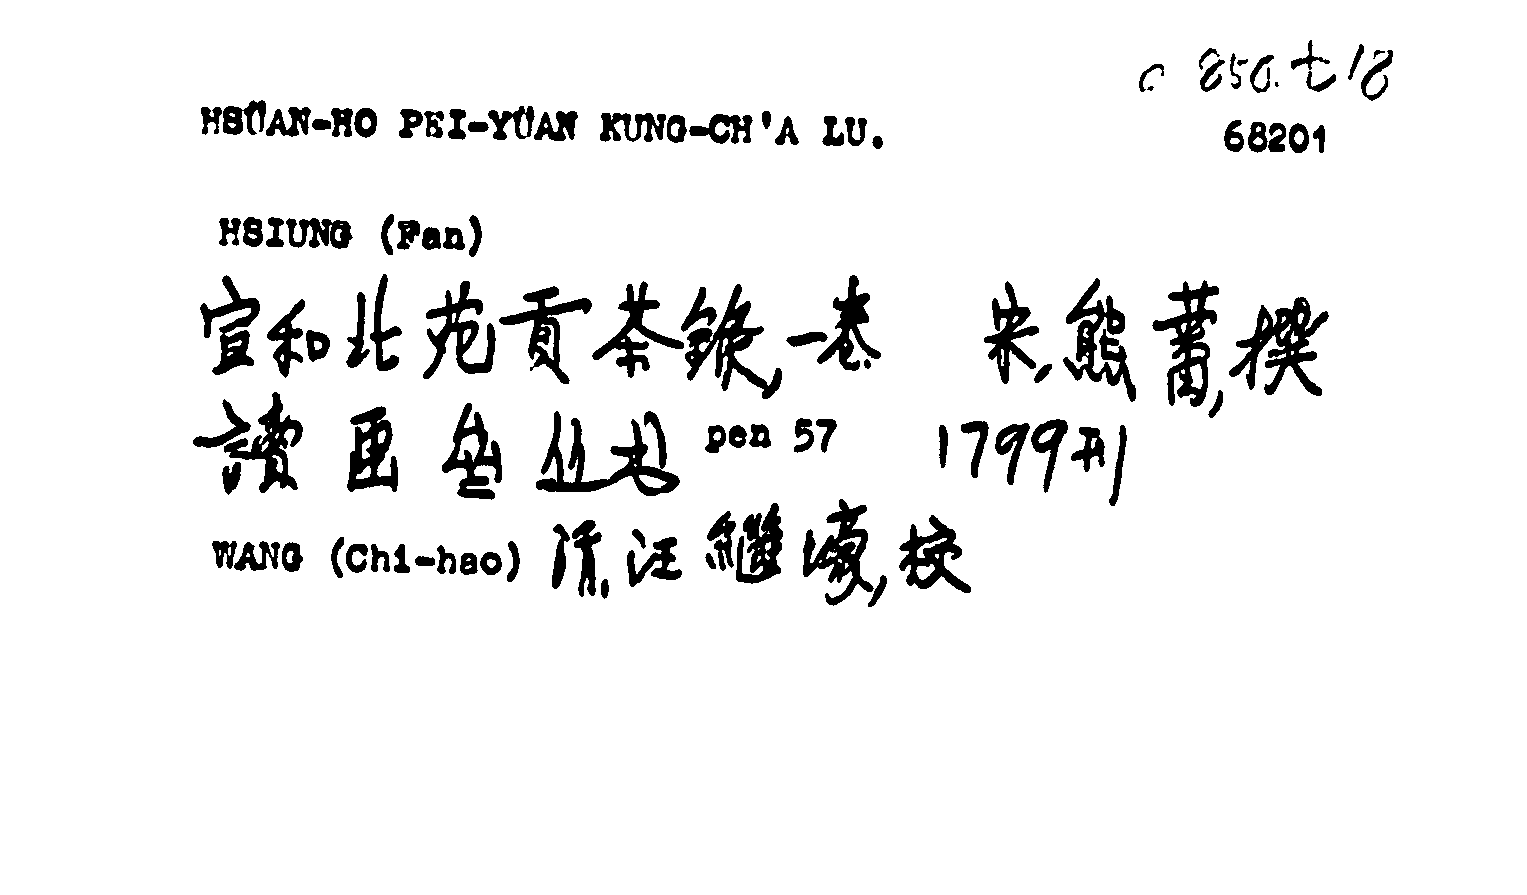 c 850.七18
HSÜAN-HO PEI-YÜAN KUNG-CH'A LU.
68201
HSIUNG (Fan)
宣和北苑貢茶錄,一卷 宋,熊蕃,撰
讀画亝丛书 pen 57 1799刊
WANG (Chi-hao) 清,汪繼濠,校